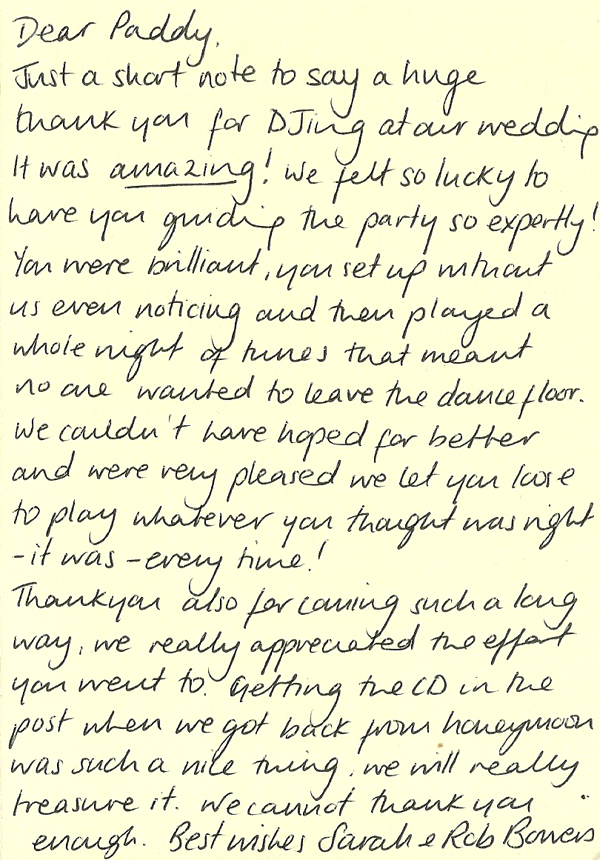 Dear Paddy,
Just a short note to say a huge
thank you for DJing at our wedding
It was amazing! We felt so lucky to
have you guiding the party so expertly!
You were brilliant, you set up without
us even noticing and then played a
whole night of tunes that meant
no one wanted to leave the dancefloor.
We couldn't have hoped for better
and were very pleased we let you loose
to play whatever you thought was right
- it was - every time!
Thankyou also for coming such a long
way, we really appreciated the effort
you went to. Getting the CD in the
post when we got back from honeymoon
was such a nice thing, we will really
treasure it. We cannot thank you
enough. Best wishes Sarah & Rob Bowers